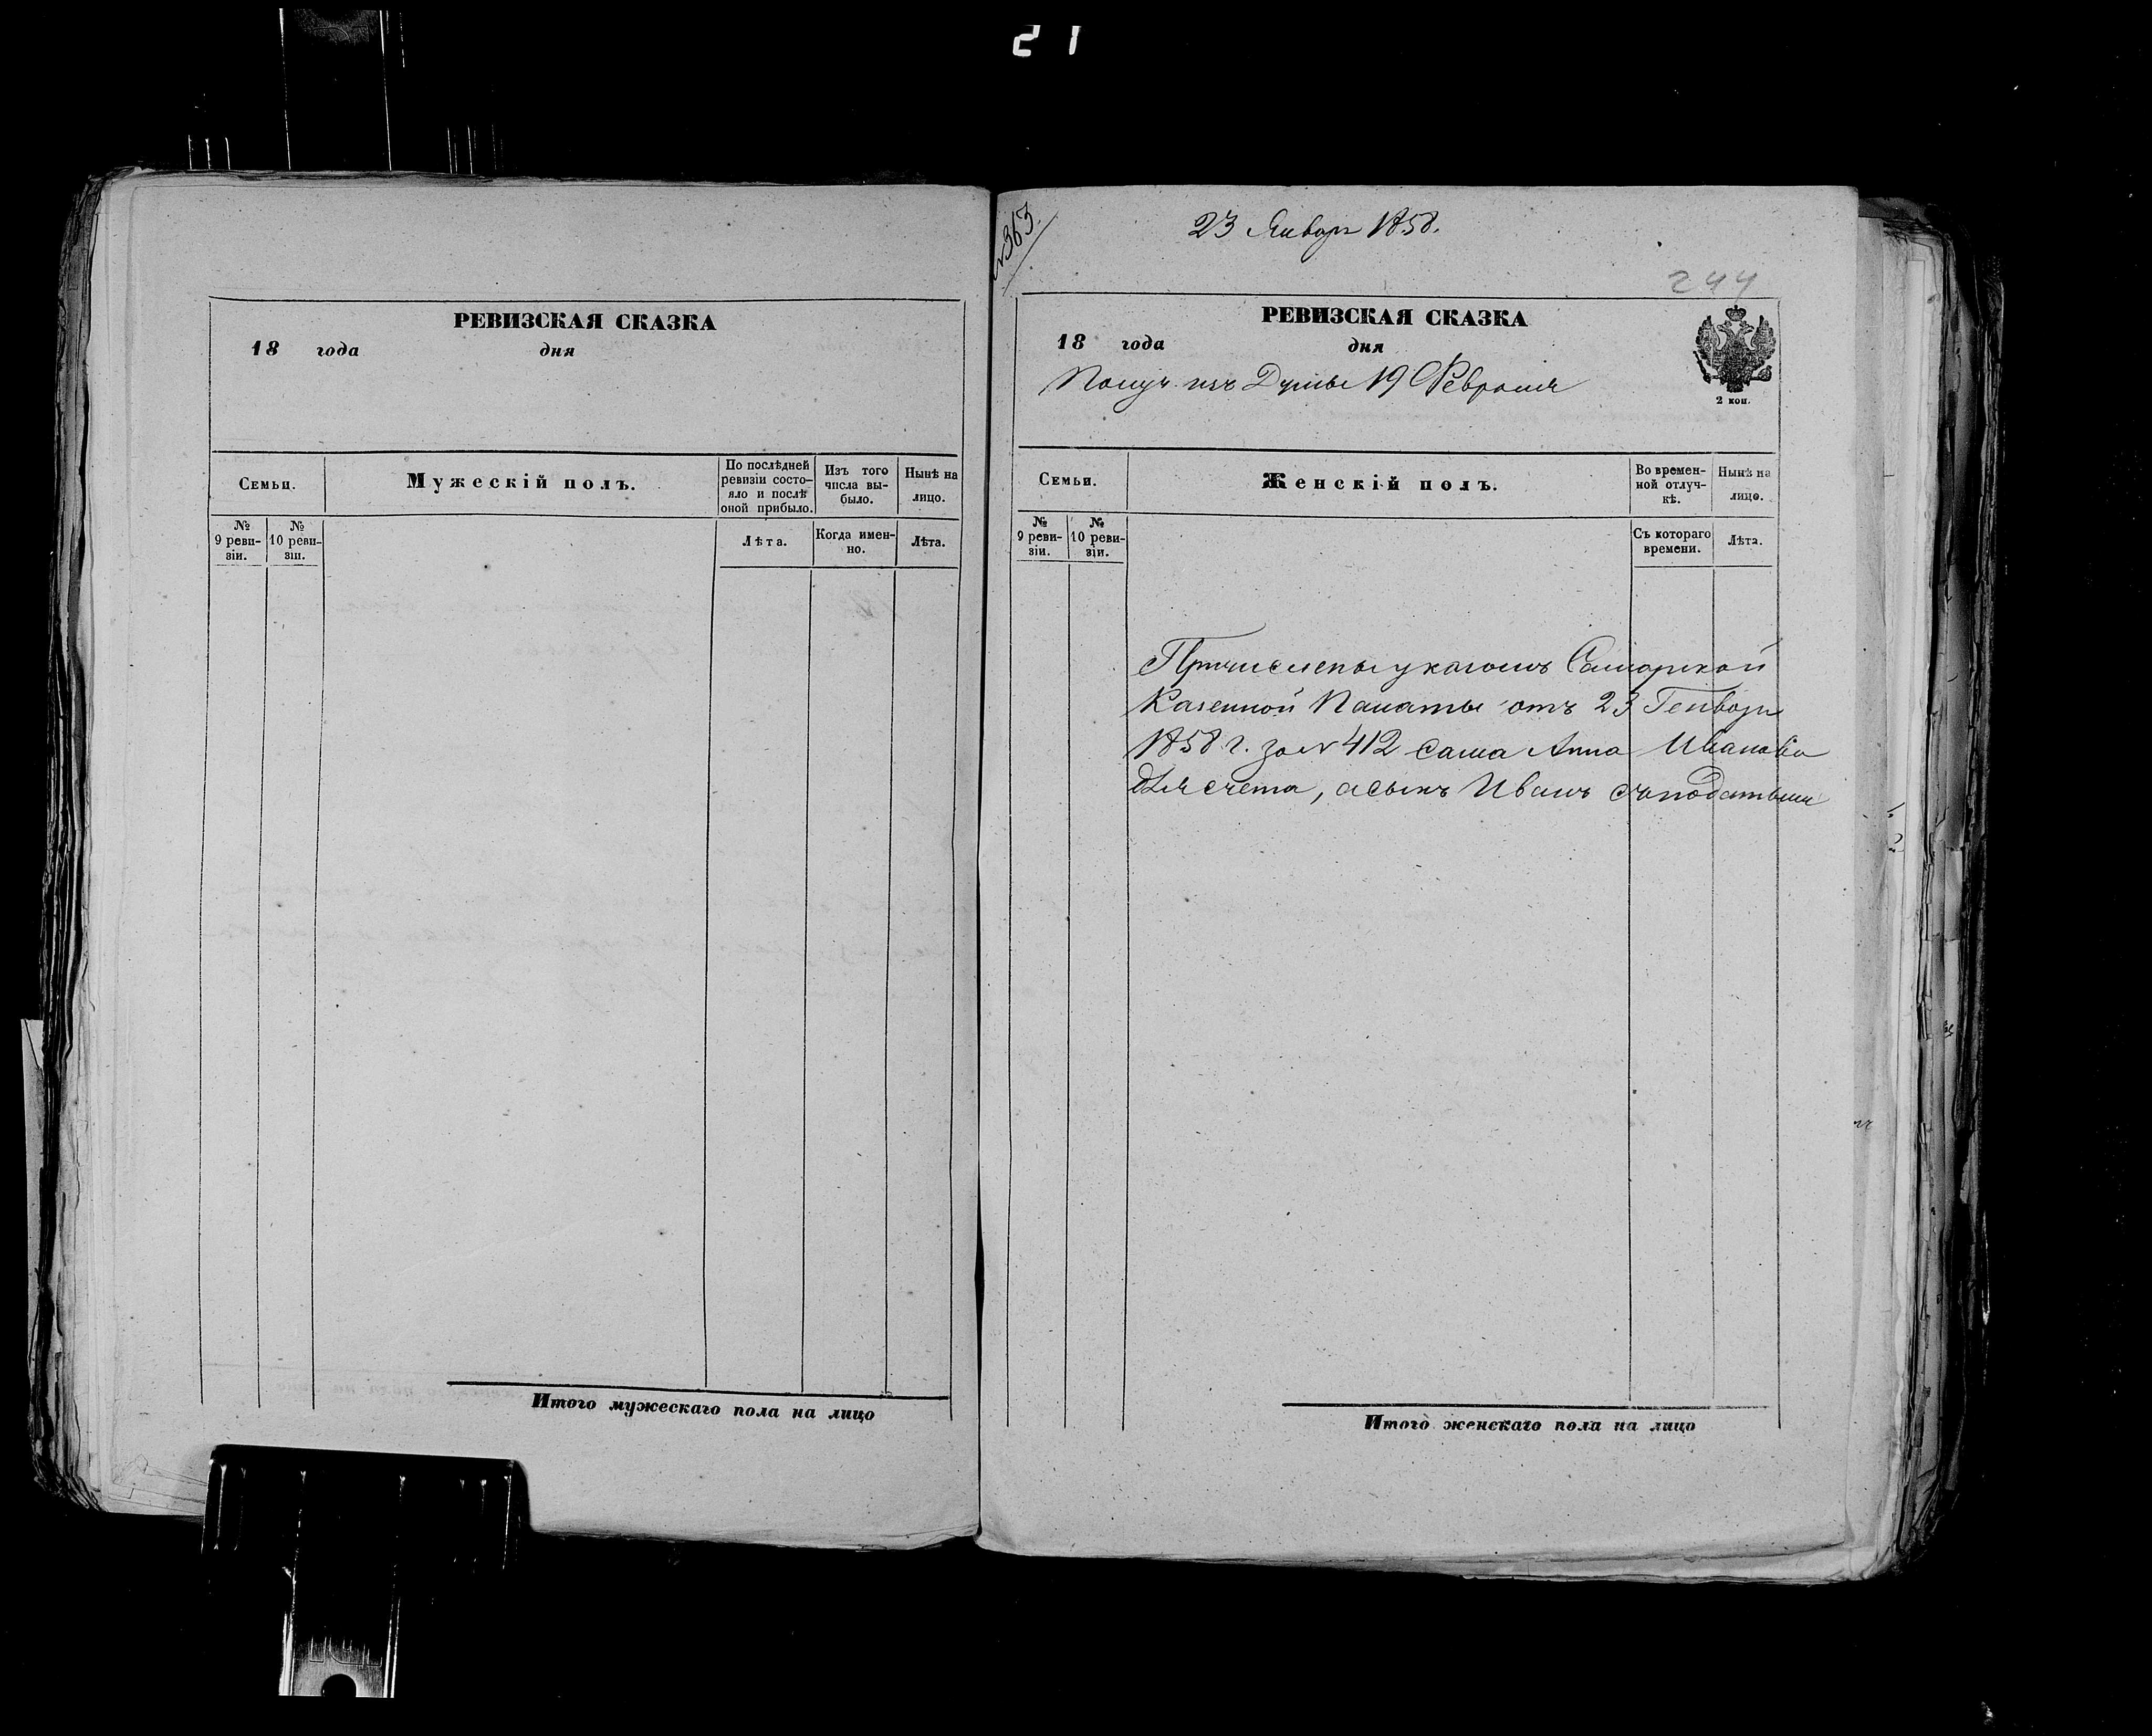 21
РЕВИЗСКАЯ СКАЗКА
18 года дня
Семьи.
Мужескій полъ.
По послѣдней ревизіи состо-
яло и послѣ
оной прибыло.
Изъ того
числа вы-
было.
Нынѣ на
лицо.
№
9 реви-
зіи.
№
10 реви-
зіи.
Лѣта.
Когда имен-
но.
Лѣта.
Итого мужескаго пола на лицо
№363.
23 Январь 1858.
244
РЕВИЗСКАЯ СКАЗКА
18 года дня
2 коп.
Получ. изъ Думы 19 Февраля
Семьи.
Женскій полъ.
Во времен-
ной отлуч-
кѣ.
Нынѣ на
лицо.
№
9 реви-
зіи.
№
10 реви-
зіи.
Съ котораго
времени.
Лѣта.
Причислены указомъ Самарской
Казенной Палаты отъ 23 Генваря
1858 г. за № 412 сама Анна Иванова
для счета, а сынъ Иванъ съ податьми
Итого женскаго пола на лицо